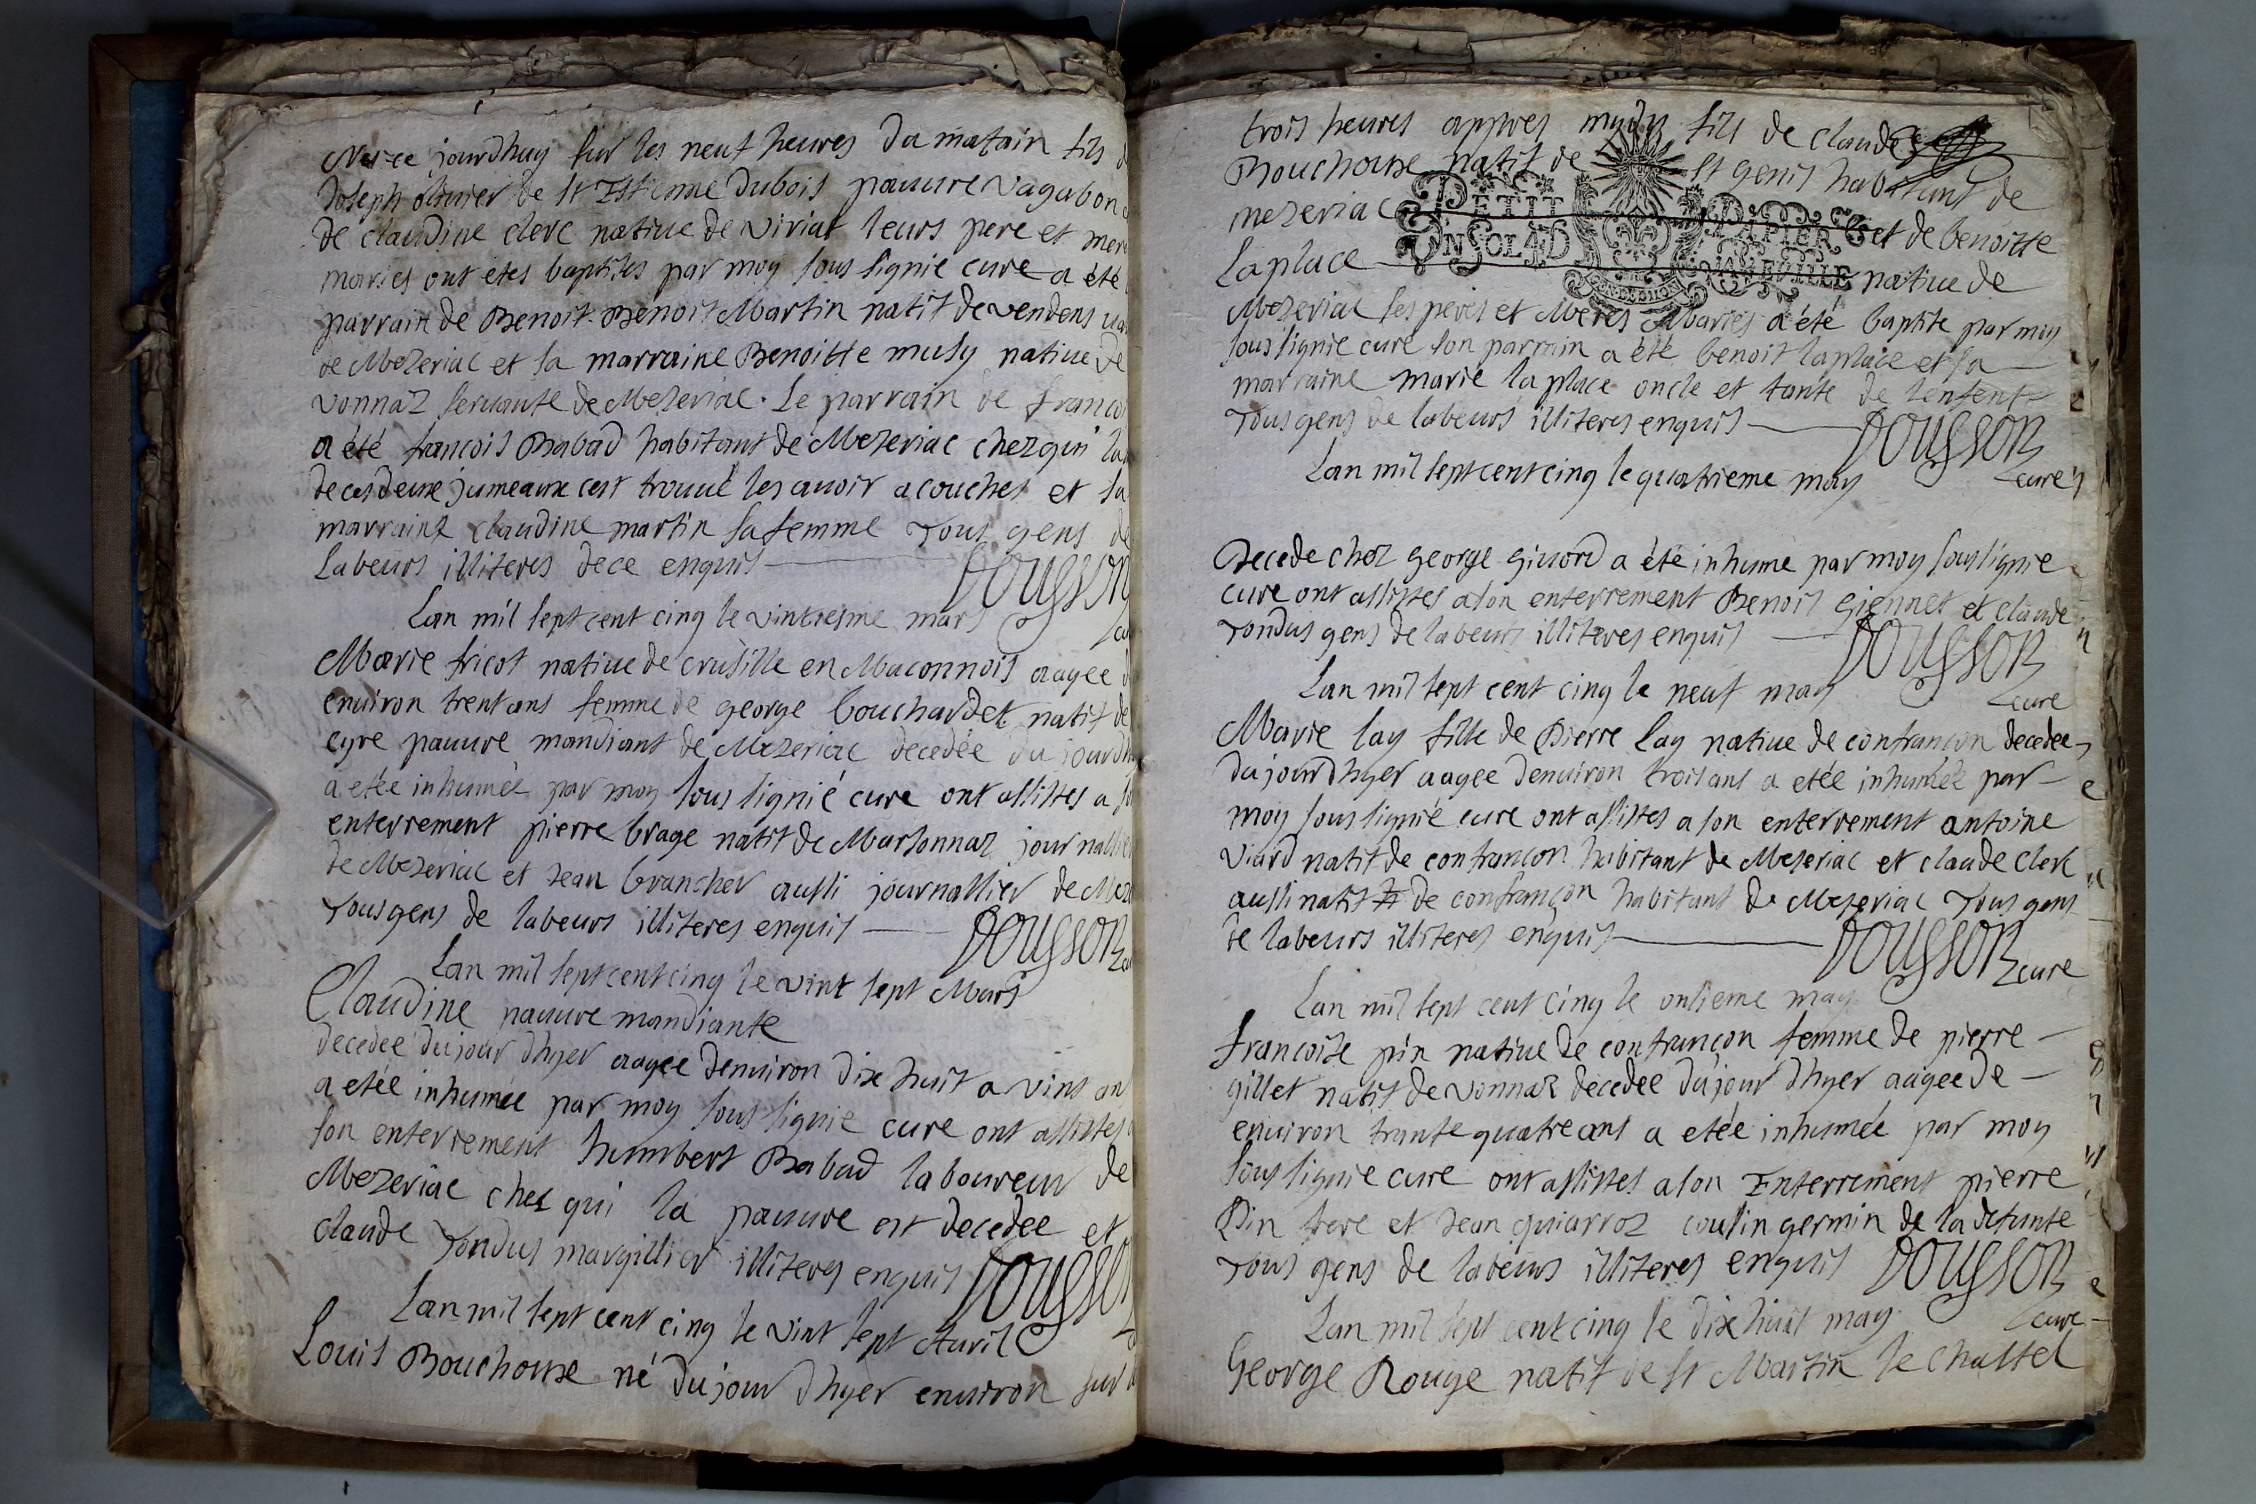 Nes ce jourdhuy sur les neuf heures du matain fils d
Joseph olivier de st Estienne Dubois pauure vagabon
de claudine clerc natiue de viriat leurs pere et mer
maries ont etes baptises par moy sous signie cure a été
parrain de Benoit Benoit Martin natif de vendens
de Mezeriac et sa marraine Benoitte musy natiue de
vonnaz seruante de Mezeriac. Le parrain de francoi
a été francois Babad habitant de Mezeriac chez qui la
de ces deux jumeaux cest trouué les auoir acouches et sa
marraine claudine martin sa femme Tous gens de
labeurs illiteres de ce enquis Dousson
Lan mil sept cent cinq le vintiesme mars cu
Marie fricot natiue de crusille en Maconnois aagee d
enuiron trent ans femme de george bouchardet natif de
cyre pauure mandiant de Mezeriac decedée du jourdh
a etée inhumée par moy sous signié cure ont assistes a so
enterrement pierre brage natif de Marsonnaz journallie
de Mezeriac et Jean brancher aussi journallier de Meze
Tous gens de labeurs illiteres enquis Dousson
Lan mil sept cent cinq le vint sept Mars
Claudine pauure mandiante
decedeé du jour dhyer aagée denuiron dix huit a vint an
a etée inhumée par moy sous signie cure ont assistes a
son enterrement humbert Babad laboureur de
Mezeriac chez qui la pauure est decedée et
claude Tondus margillier illiteres enquis Dousson
Lan mil sept cent cinq le vint sept Auril
Louis Bouchoux né du jour dhyer enuiron sur
trois heures appres mydy fils de claude
Bouchoux natif de st genis habitant de
mezeriac et de benoitte
PETIT PAPIER
Laplace natiue de
IN FOL 4 D
Mezeriac ses peres et Meres Maries a été baptise par moy
sous signie curé son parrain a été benoit laplace et sa
marraine marie la place oncle et tante de lenfent
Tous gens de labeurs illiteres enquis Dousson
Lan mil sept cent cinq le quatrieme may cure
Decede chez george giuord a été inhumé par moy sous signie
cure ont assistes a son enterrement Benoit giennet et claude
Tondus gens de labeurs illiteres enquis Dousson
Lan mil sept cent cinq le neuf may cure
Marie lay fille de Pierre Lay natiue de confrancon decedee
du jour dhyer aagee denuiron trois ans a etée inhumée par
moy sous signié cure ont assistes a son enterrement antoine
viard natif de confrancon habitant de Mezeriac et claude clerc
aussi natif de confrancon habitant de Mezeriac Tous gens
de labeurs illiteres enquis Dousson cure
Lan mil sept cent cinq le onsieme may
francoise pin natiue de confrancon femme de pierre
gillet natif de vonnaz decedée du jour dhyer aagee de
enuiron trante quatre ans a etée inhumée par moy
sous signie cure ont assistes a son Enterrement pierre
Pin frere et Jean quiarroz cousin germin de la defunte
Tous gens de labeurs illiteres enquis Dousson
Lan mil sept cent cinq le dix huit may cure
George Rouge natif de st Martin le Chattel